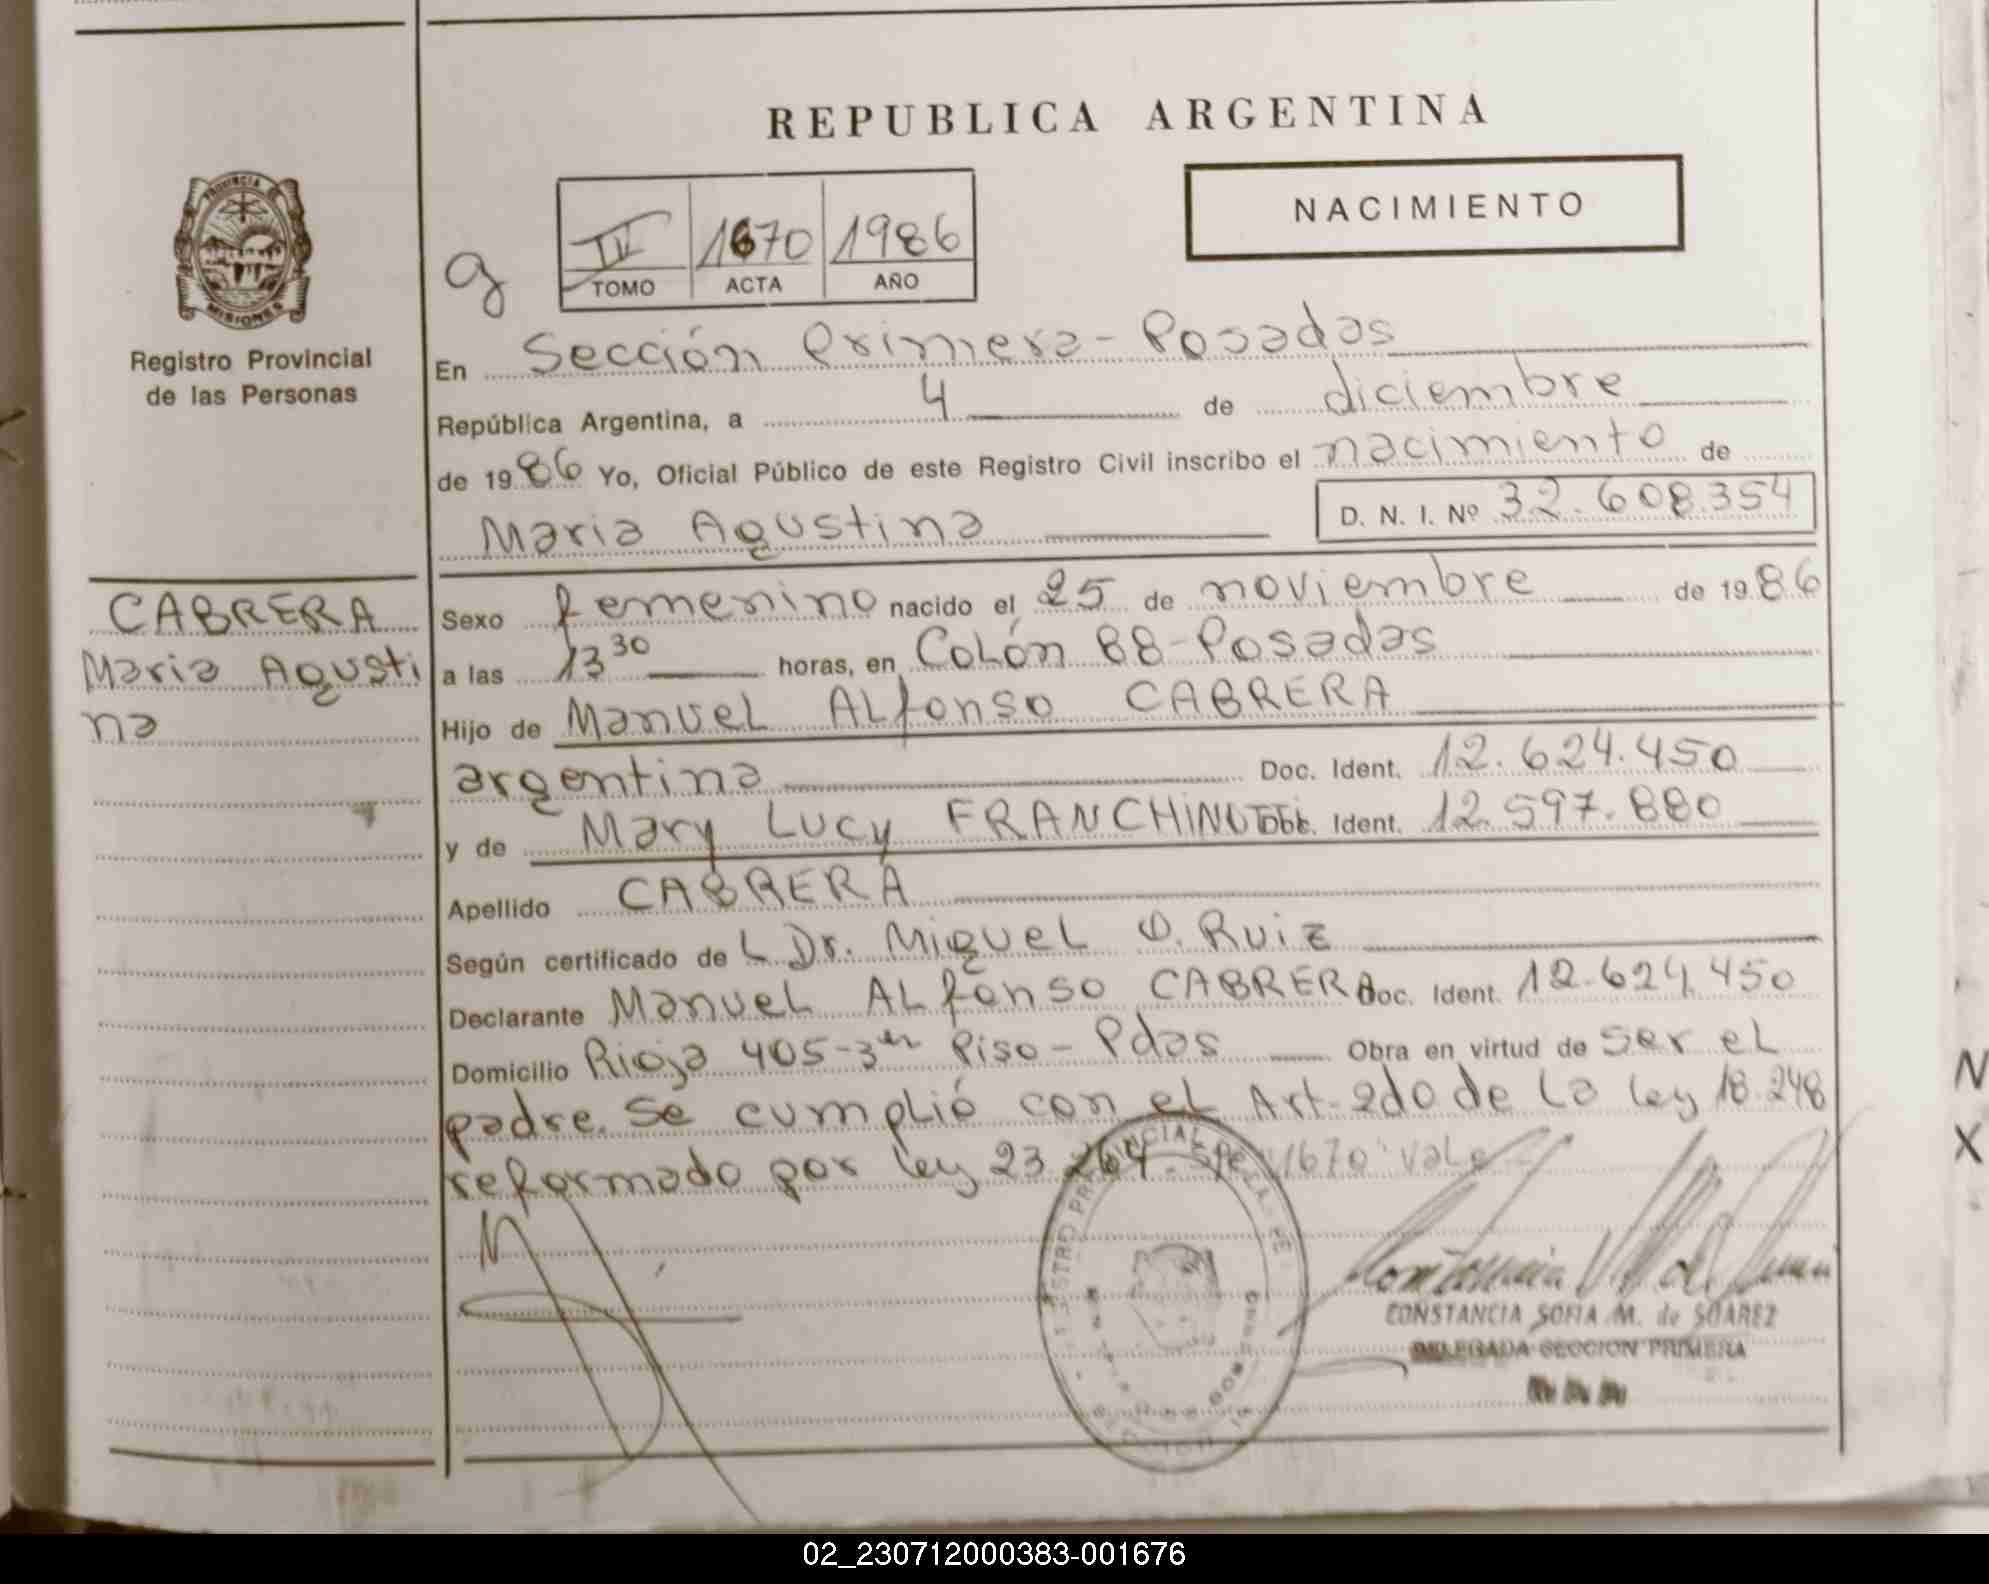 REPUBLICA ARGENTINA
NACIMIENTO
PROVINCIA DE
MISIONES
Registro Provincial
de las Personas
g
IV 1670 1986
TOMO ACTA AÑO
En Sección Primera - Posadas
República Argentina, a 4 de diciembre
de 1986 Yo, Oficial Público de este Registro Civil inscribo el nacimiento de
Maria Agustina D. N. I. Nº 32.608.354
CABRERA
Maria Agusti
na
Sexo femenino nacido el 25 de noviembre de 1986
a las 13 30 horas, en Colón 88 - Posadas
Hijo de Manuel Alfonso CABRERA
argentina Doc. Ident. 12.624.450
y de Mary Lucy FRANCHINOTTI Doc. Ident. 12.597.880
Apellido CABRERA
Según certificado de L Dr. Miguel O. Ruiz
Declarante Manuel Alfonso CABRERA Doc. Ident. 12.624.450
Domicilio Rioja 405-3er Piso - Pdas Obra en virtud de ser el
padre. Se cumplió con el Art. 2do de la ley 18.248
reformado por ley 23.264. S/R "1670" vale
CONSTANCIA SOFIA M. de SUAREZ
DELEGADA SECCION PRIMERA
N
X
02_230712000383-001676